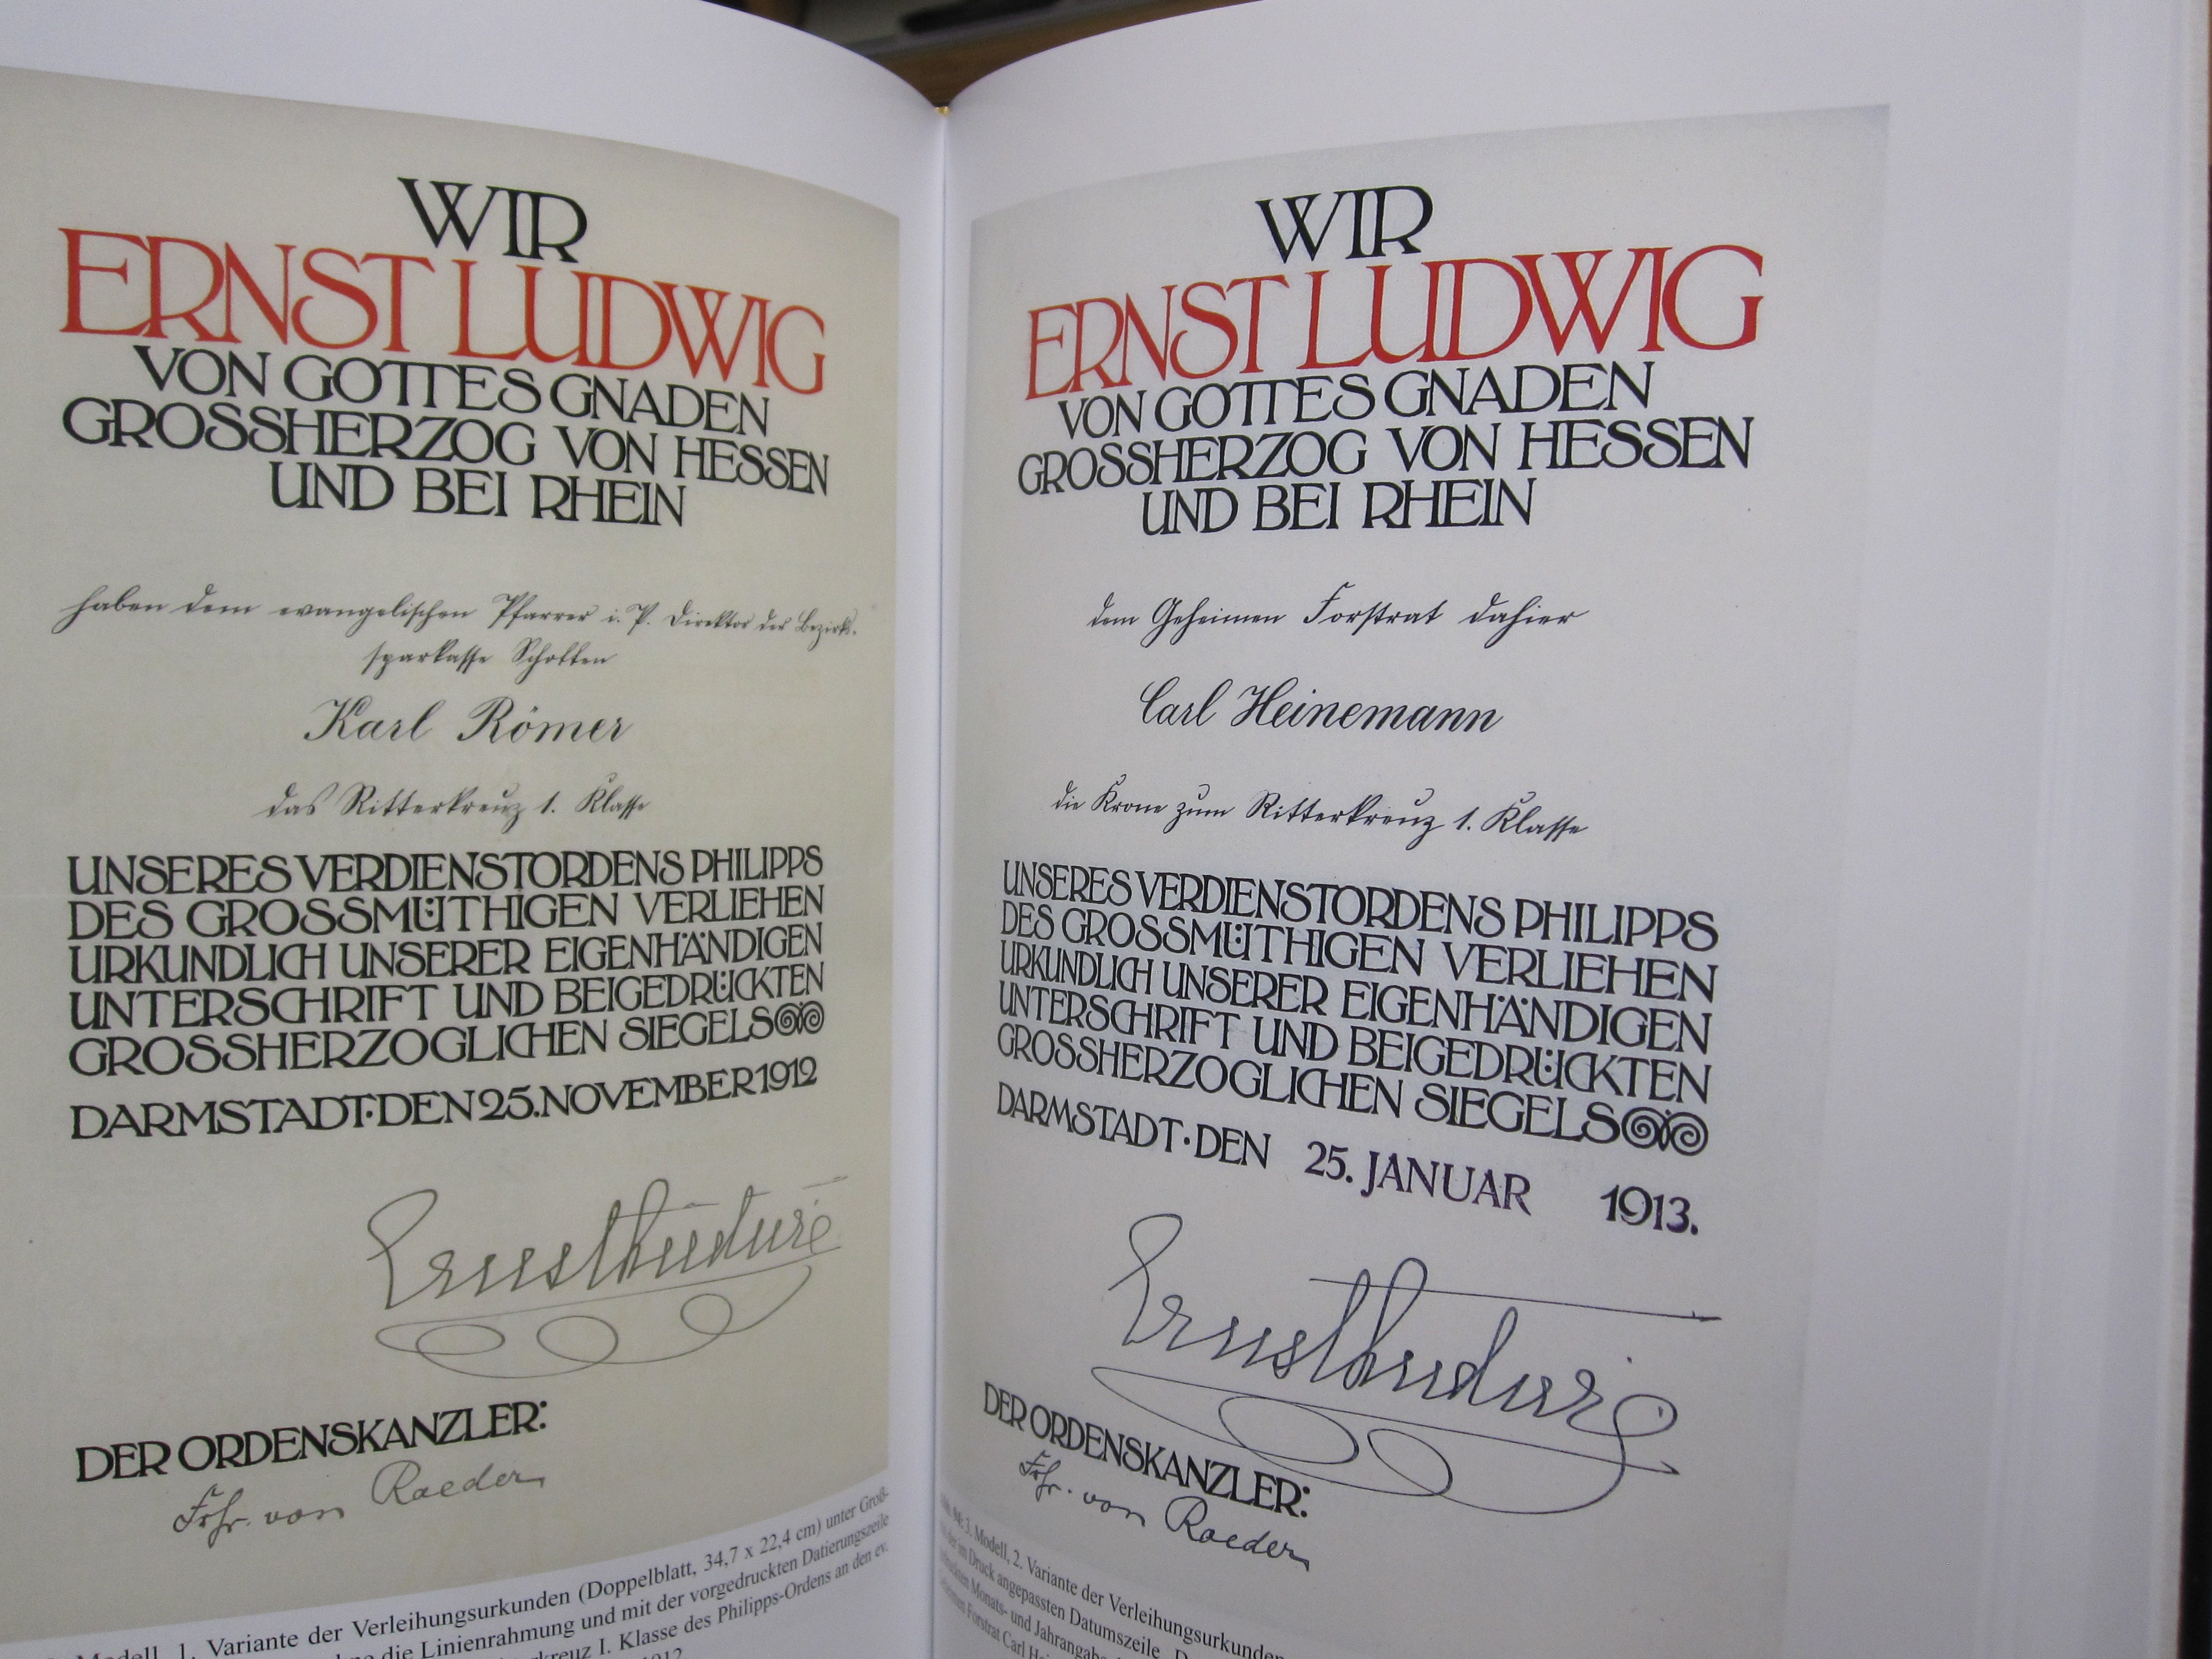 WIR
ERNST LUDWIG
VON GOTTES GNADEN
GROSSHERZOG VON HESSEN
UND BEI RHEIN
haben dem evangelischen Pfarrer i. P. Direktor der Bezirks-
sparkasse Schotten
Karl Römer
das Ritterkreuz 1. Klasse
UNSERES VERDIENSTORDENS PHILIPPS
DES GROSSMÜTHIGEN VERLIEHEN
URKUNDLICH UNSERER EIGENHÄNDIGEN
UNTERSCHRIFT UND BEIGEDRÜCKTEN
GROSSHERZOGLICHEN SIEGELS
DARMSTADT·DEN 25. NOVEMBER 1912
Ernst Ludwig
DER ORDENSKANZLER:
Frhr. von Roeder
Modell, 1. Variante der Verleihungsurkunden (Doppelblatt, 34,7 x 22,4 cm) unter Groß-
die Linienrahmung und mit der vorgedruckten Datierungszeile
I. Klasse des Philipps-Ordens an den ev.
1912
WIR
ERNST LUDWIG
VON GOTTES GNADEN
GROSSHERZOG VON HESSEN
UND BEI RHEIN
dem Geheimen Forstrat dahier
Carl Heinemann
die Krone zum Ritterkreuz 1. Klasse
UNSERES VERDIENSTORDENS PHILIPPS
DES GROSSMÜTHIGEN VERLIEHEN
URKUNDLICH UNSERER EIGENHÄNDIGEN
UNTERSCHRIFT UND BEIGEDRÜCKTEN
GROSSHERZOGLICHEN SIEGELS
DARMSTADT·DEN 25. JANUAR 1913.
Ernst Ludwig
DER ORDENSKANZLER:
Frhr. von Roeder
3. Modell, 2. Variante der Verleihungsurkunden
im Druck angepassten Datumszeile
Monats- und Jahrangabe
Forstrat Carl